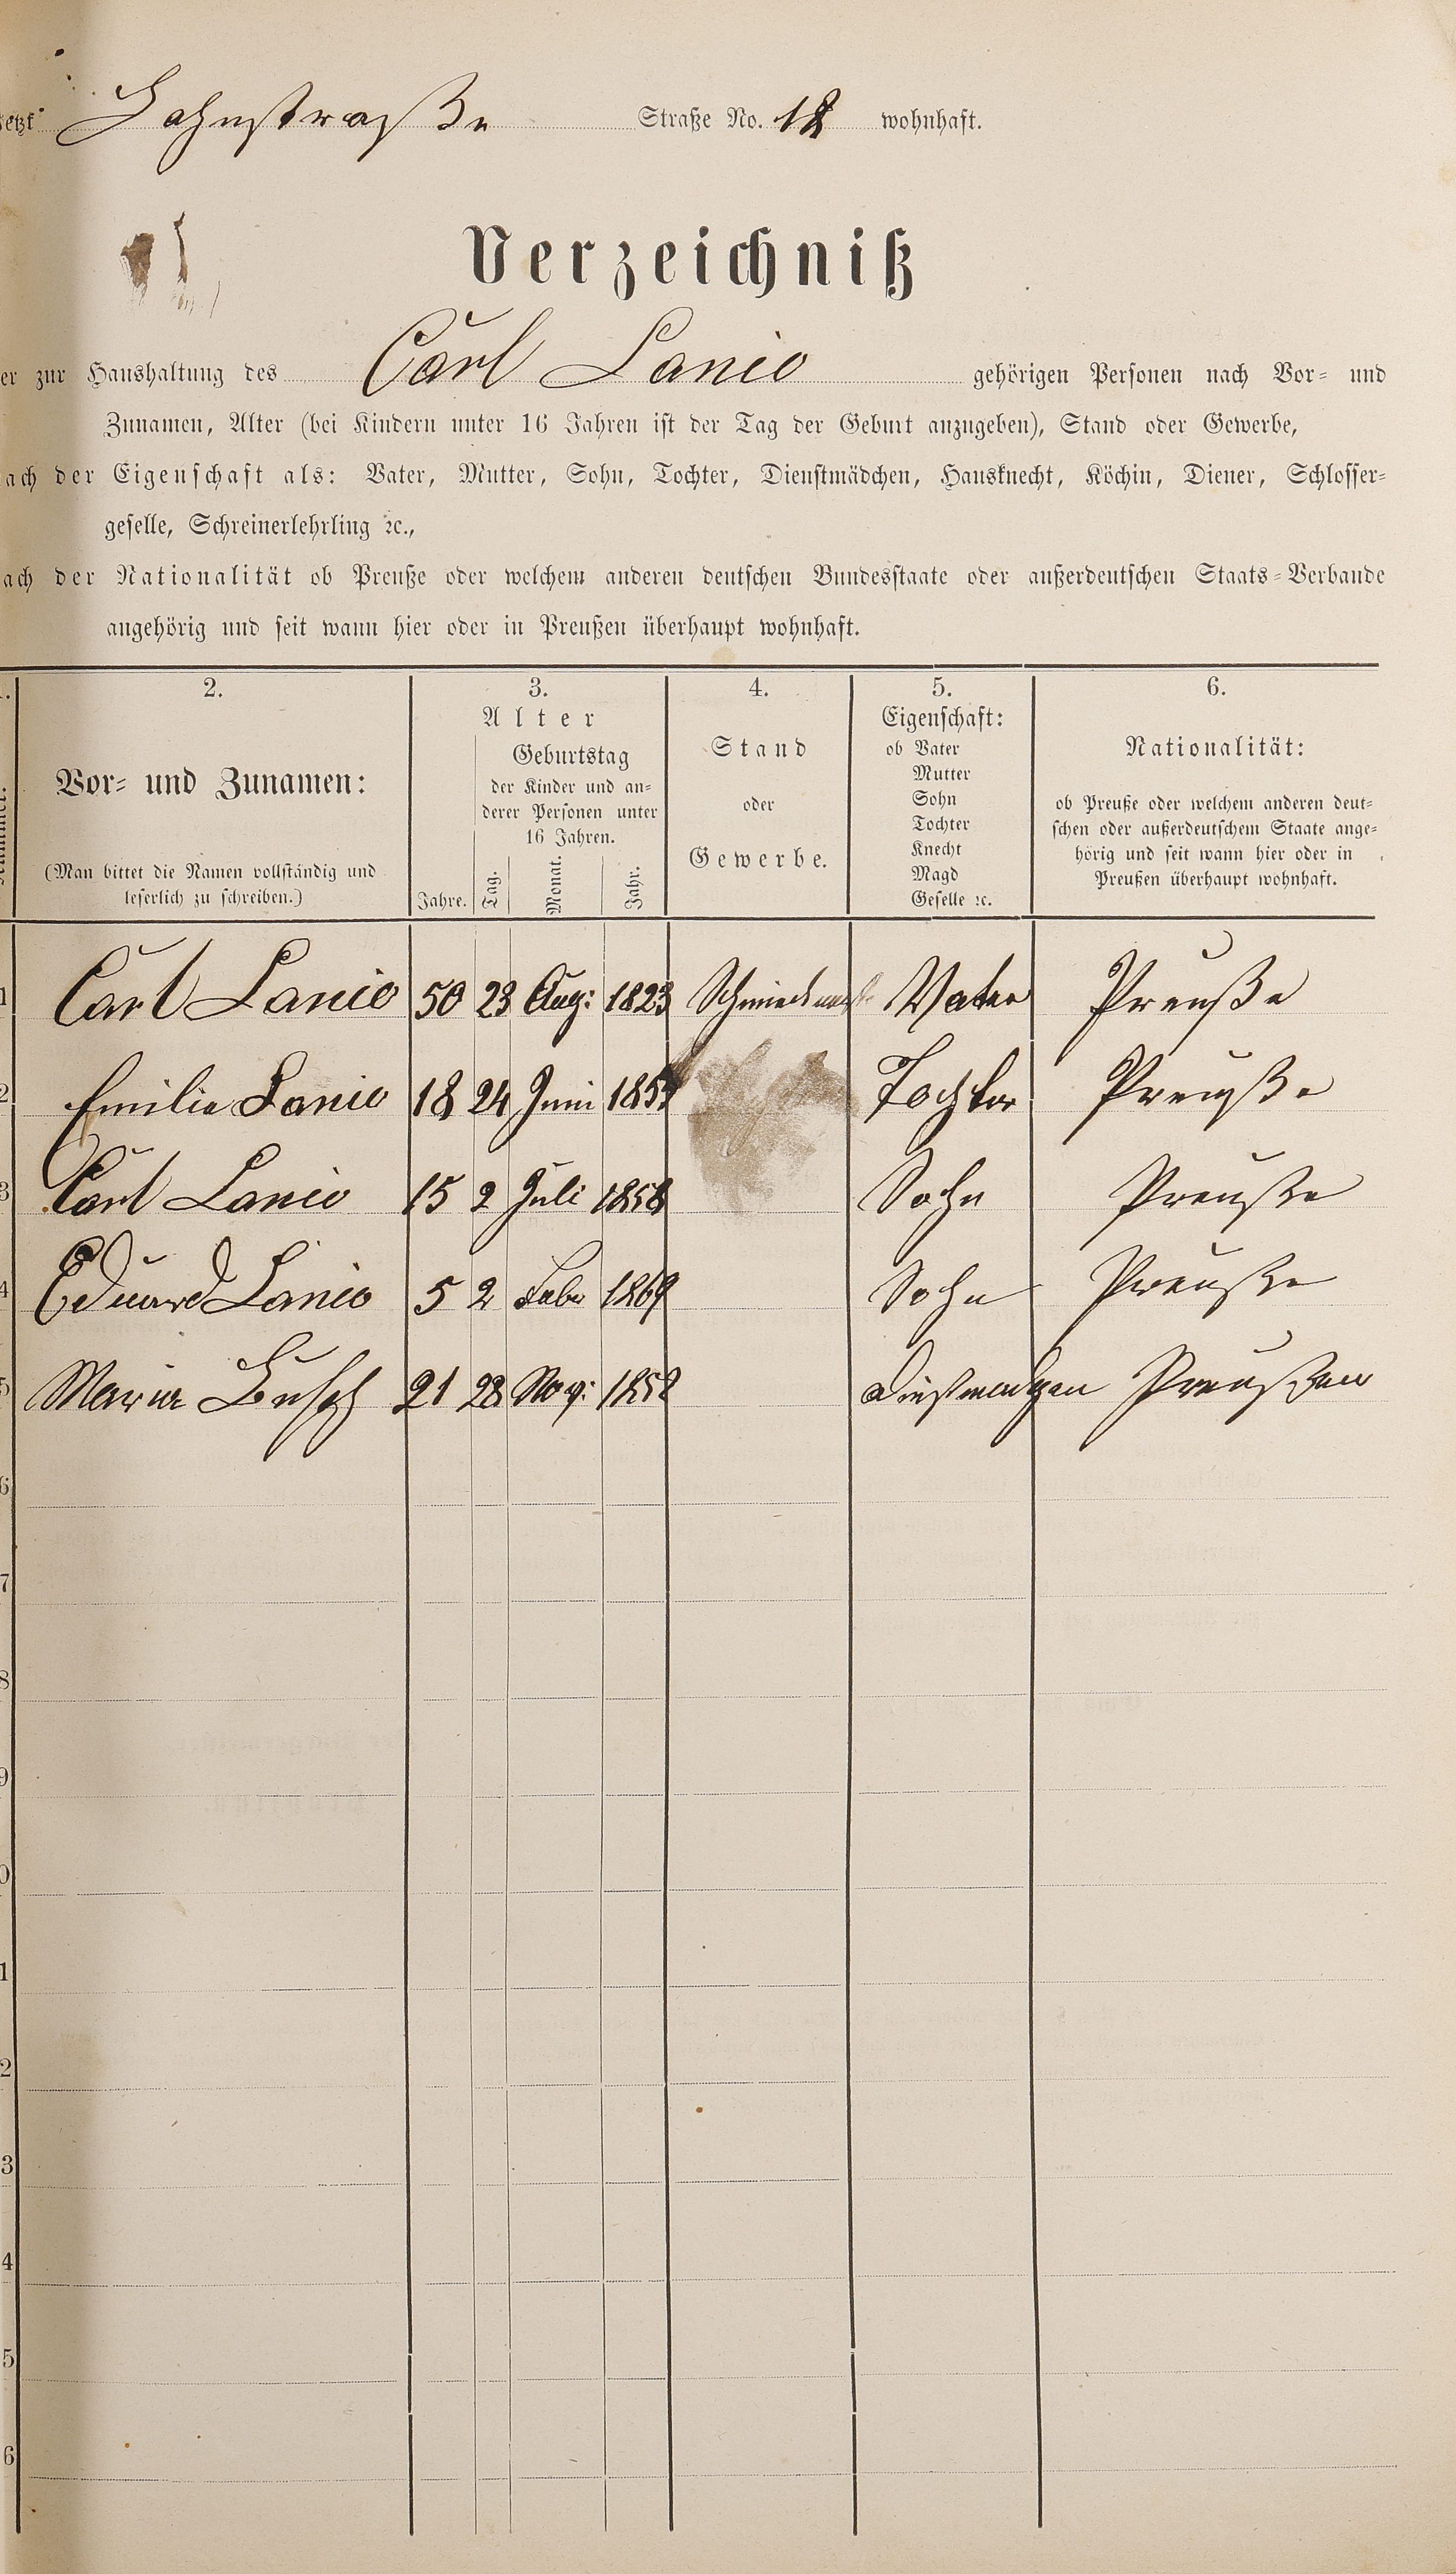 jetzt Hahnstraße Straße No. 18 wohnhaft.
Verzeichniß
er zur Haushaltung des Carl Lanio gehörigen Personen nach Vor- und
Zunamen, Alter (bei Kindern unter 16 Jahren ist der Tag der Geburt anzugeben), Stand oder Gewerbe,
ach der Eigenschaft als: Vater, Mutter, Sohn, Tochter, Dienstmädchen, Hausknecht, Köchin, Diener, Schlosser-
geselle, Schreinerlehrling ꝛc.,
ach der Nationalität ob Preuße oder welchem anderen deutschen Bundesstaate oder außerdeutschen Staats-Verbande
angehörig und seit wann hier oder in Preußen überhaupt wohnhaft.
2. 3. 4. 5. 6.
Vor- und Zunamen:
(Man bittet die Namen vollständig und
leserlich zu schreiben.)
Alter
Geburtstag
der Kinder und an-
derer Personen unter
16 Jahren.
Jahre. Tag. Monat. Jahr.
Stand
oder
Gewerbe.
Eigenschaft:
ob Vater
Mutter
Sohn
Tochter
Knecht
Magd
Geselle ꝛc.
Nationalität:
ob Preuße oder welchem anderen deut-
schen oder außerdeutschem Staate ange-
hörig und seit wann hier oder in
Preußen überhaupt wohnhaft.
1 Carl Lanio 50 23 Aug: 1823 Vater Preuße
2 Emilie Lanio 18 24 Juni Tochter Preuße
3 Carl Lanio 15 2 Juli 1858 Sohn Preuße
4 Eduard Lanio 5 2 Febr 1869 Sohn Preuße
5 Maria Busch 21 28 Nov: 1852 Dinstmachen Preußen
6
7
8
9
0
1
2
3
4
5
6